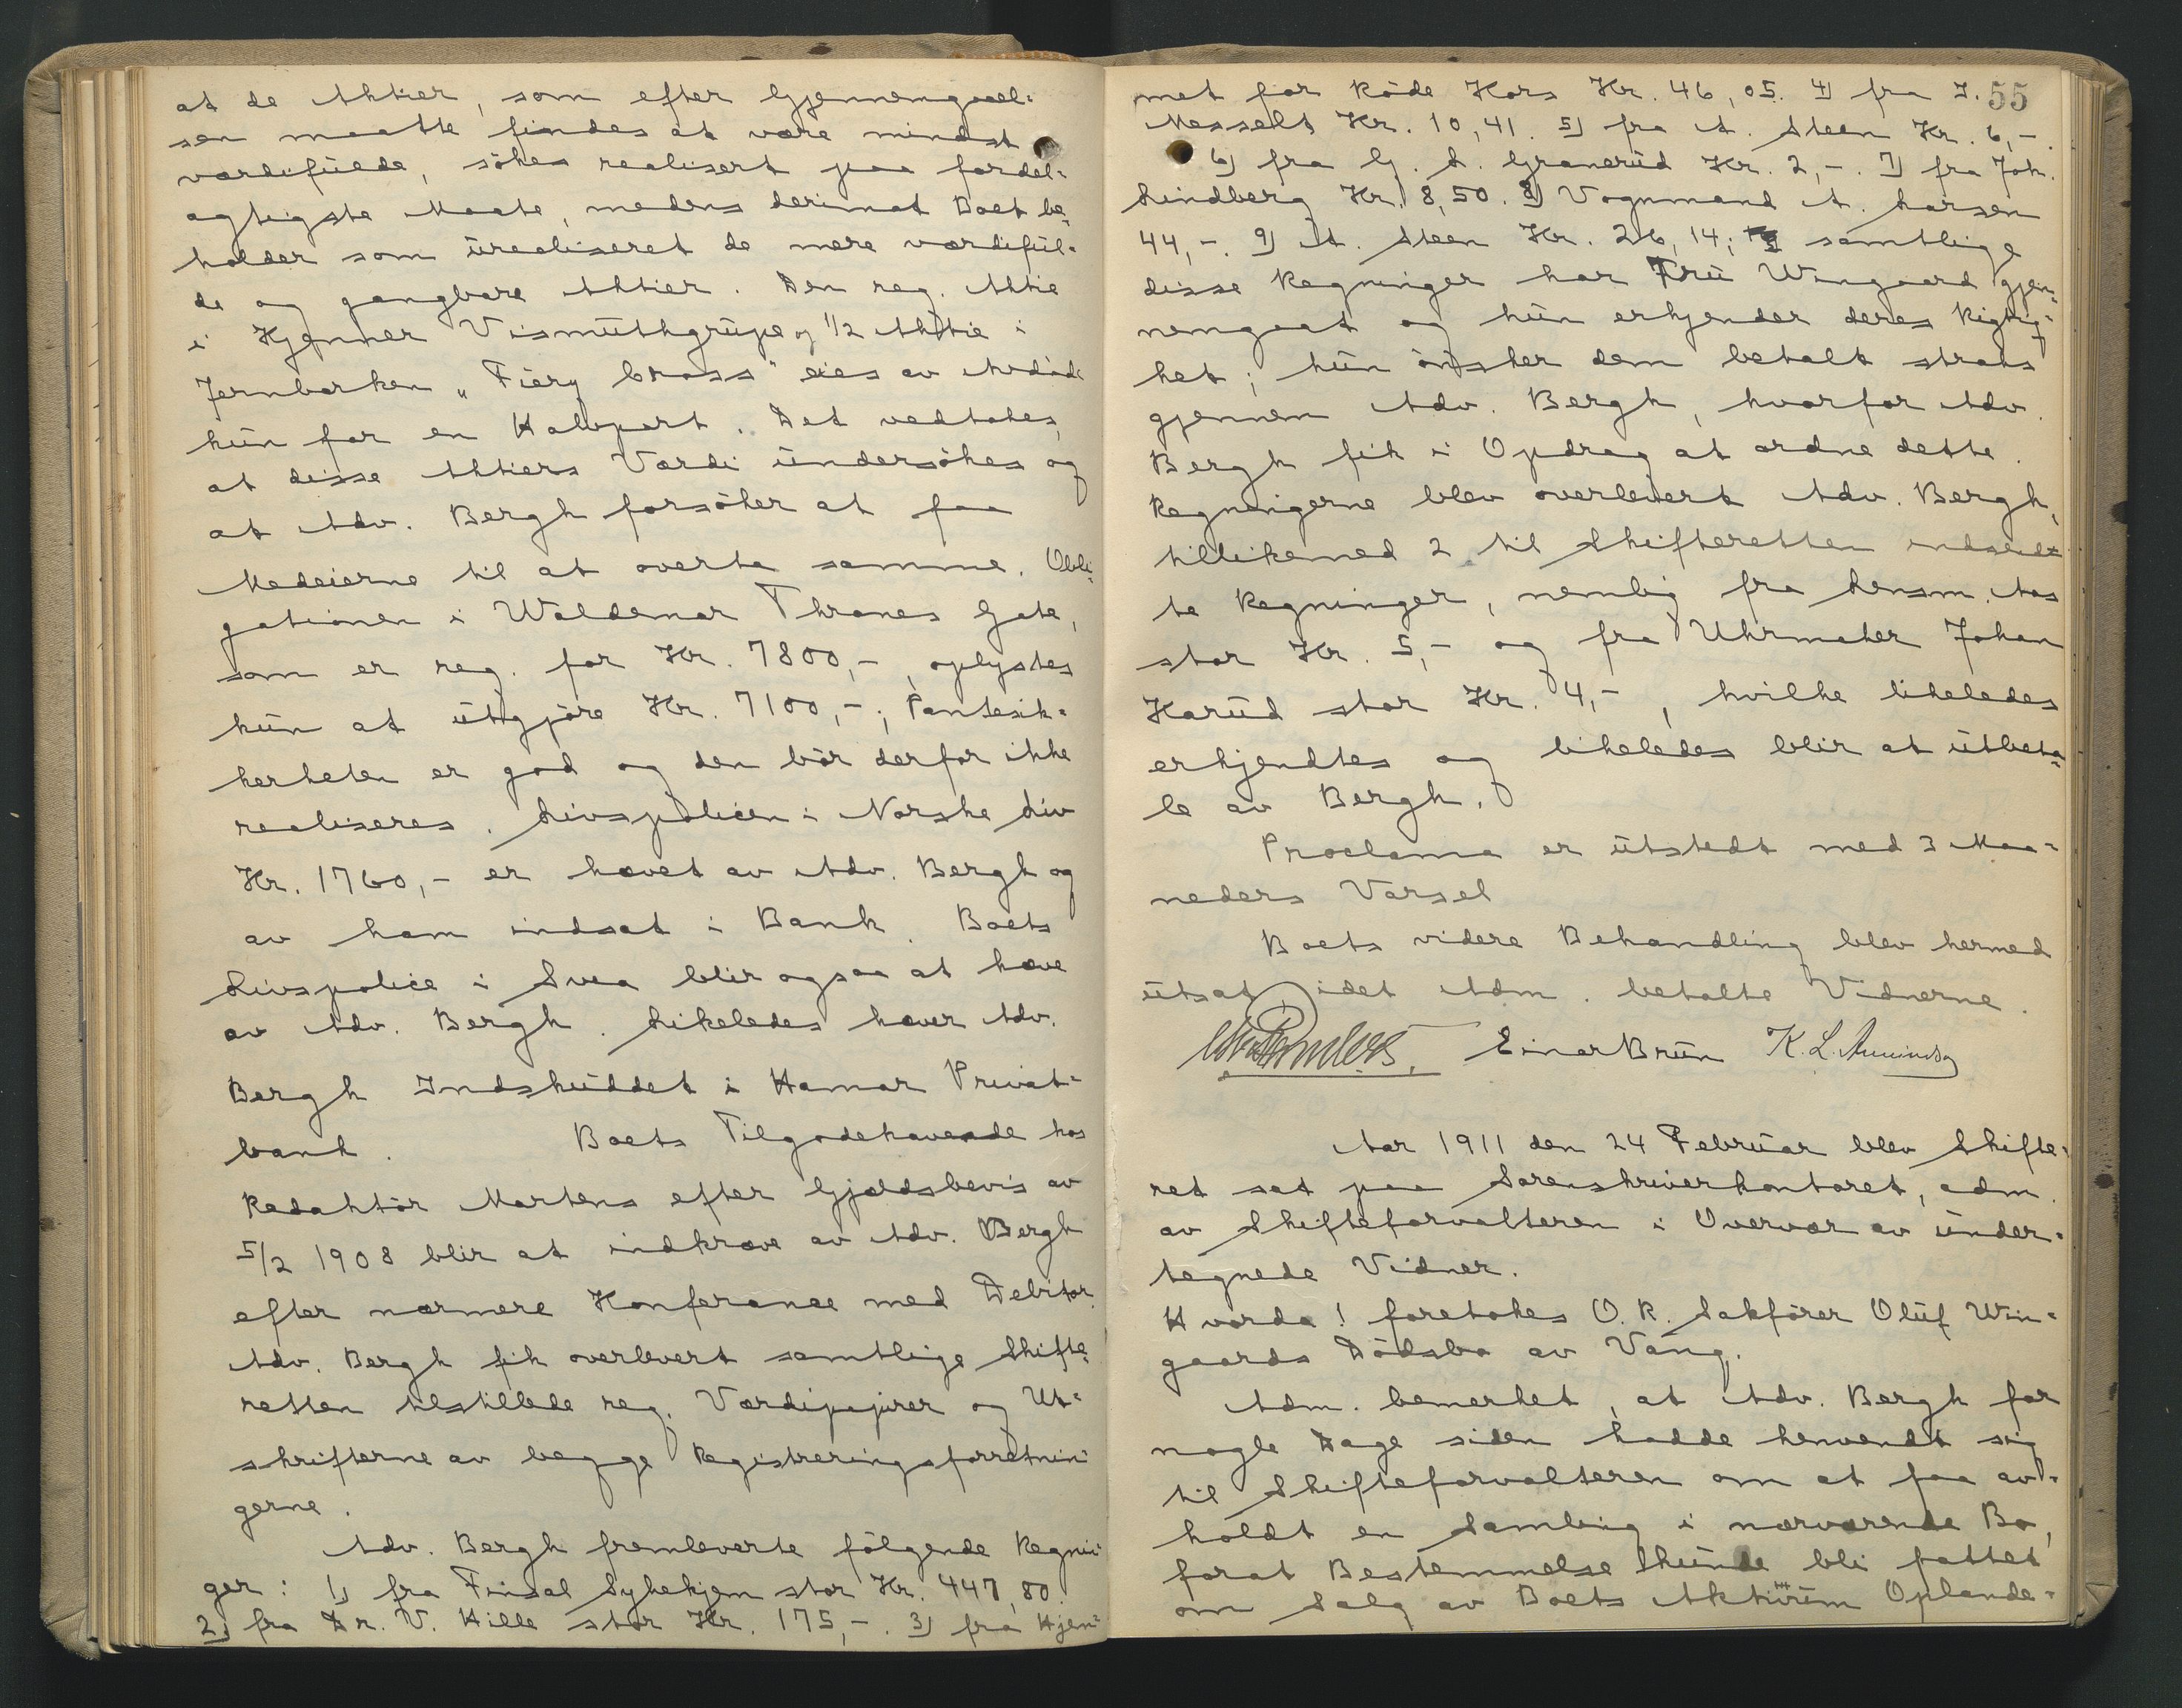 at de Aktier, som efter Gjennemgaael-
sen maatte findes at være mindst
værdifulde, søkes realisert paa fordel-
agtigste Maate, medens derimot Boet be-
holder som urealiseret de mere værdiful-
de og gangbare Aktier. Den reg. Aktie
i Kjenner Vismuthgrupe og 1/2 Aktie i
Jernbarken "Fiery Cross" eies av Avdøde
kun for en Halvpart. Det vedtokes,
at disse Aktiers Værdi undersøkes og
at Adv. Bergh forsøker at faa
Medeierne til at overta samme. Obli-
gationen i Waldemar Thranes Gate,
som er reg. for Kr. 7800,-, oplystes
kun at utgjøre Kr. 7100,-; Pantesik-
kerheten er god og den bør derfor ikke
realiseres. Livspolicen i Norske Liv
Kr. 1760,- er hævet av Adv. Bergh og
av ham indsat i Bank. Boets
Livspolice i Svea blir ogsaa at hæve
av Adv. Bergh. Likeledes hæver Adv.
Bergh Indskuddet i Hamar Privat-
bank. Boets Tilgodehavende hos
Redaktør Martens efter Gjældsbevis av
5/2 1908 blir at indkræve av Adv. Bergh
efter nærmere Konferance med Debitor.
Adv. Bergh fik overlevert samtlige Skifte-
retten tilstillede reg. Værdipapirer og Ut-
skrifterne av begge Registreringsforretnin-
gerne.
Adv. Bergh fremleverte følgende Regnin-
ger: 1) fra Furnal Sykehjem stor Kr. 447,80.
2) fra Dr. V. Hille stor Kr. 175,-. 3) fra Hjem-
55
met for Røde Kors Kr. 46,05. 4) fra J.
Messelt Kr. 10,41. 5) fra A. Steen Kr. 6,-.
6) fra G. A. Granerud Kr. 2,-. 7) fra Joh.
Lindberg Kr. 8,50. 8) Vognmand A. Larsen
44,-. 9) A. Steen Kr. 26,14; samtlige
disse Regninger har Fru Wingaard gjen-
nemgaat og hun erkjender deres Rigtig-
het; hun ønsker dem betalt straks
gjennem Adv. Bergh, hvorfor Adv.
Bergh fik i Opdrag at ordne dette.
Regningerne blev overlevert Adv. Bergh,
tillikemed 2 til Skifteretten indsend-
te Regninger, nemlig fra Lensm. Aas
stor Kr. 5,- og fra Uhrmaker Johan
Karud stor Kr. 4,-, hvilke likeledes
erkjendtes og likeledes blir at utbeta-
le av Bergh.
Proclama er utstedt med 3 Maa-
neders Varsel
Boets videre Behandling blev hermed
utsat idet Adm. betalte Vidnerne.
Einar Bruun K. L. Amundsen
Aar 1911 den 24 Februar blev Skifte-
ret sat paa Sorenskriverkontoret, adm.
av Skifteforvalteren i Overvær av under-
tegnede Vidner.
Hvorda! foretokes O. R. Sakfører Oluf Win-
gaards Dødsbo av Vang.
Adm. bemerket, at Adv. Bergh for
nogle Dage siden hadde henvendt sig
til Skifteforvalteren om at faa av-
holdt en Samling i nærværende Bo,
forat Bestemmelse kunde bli fattet
om Salg av Boets Aktier i Oplande-